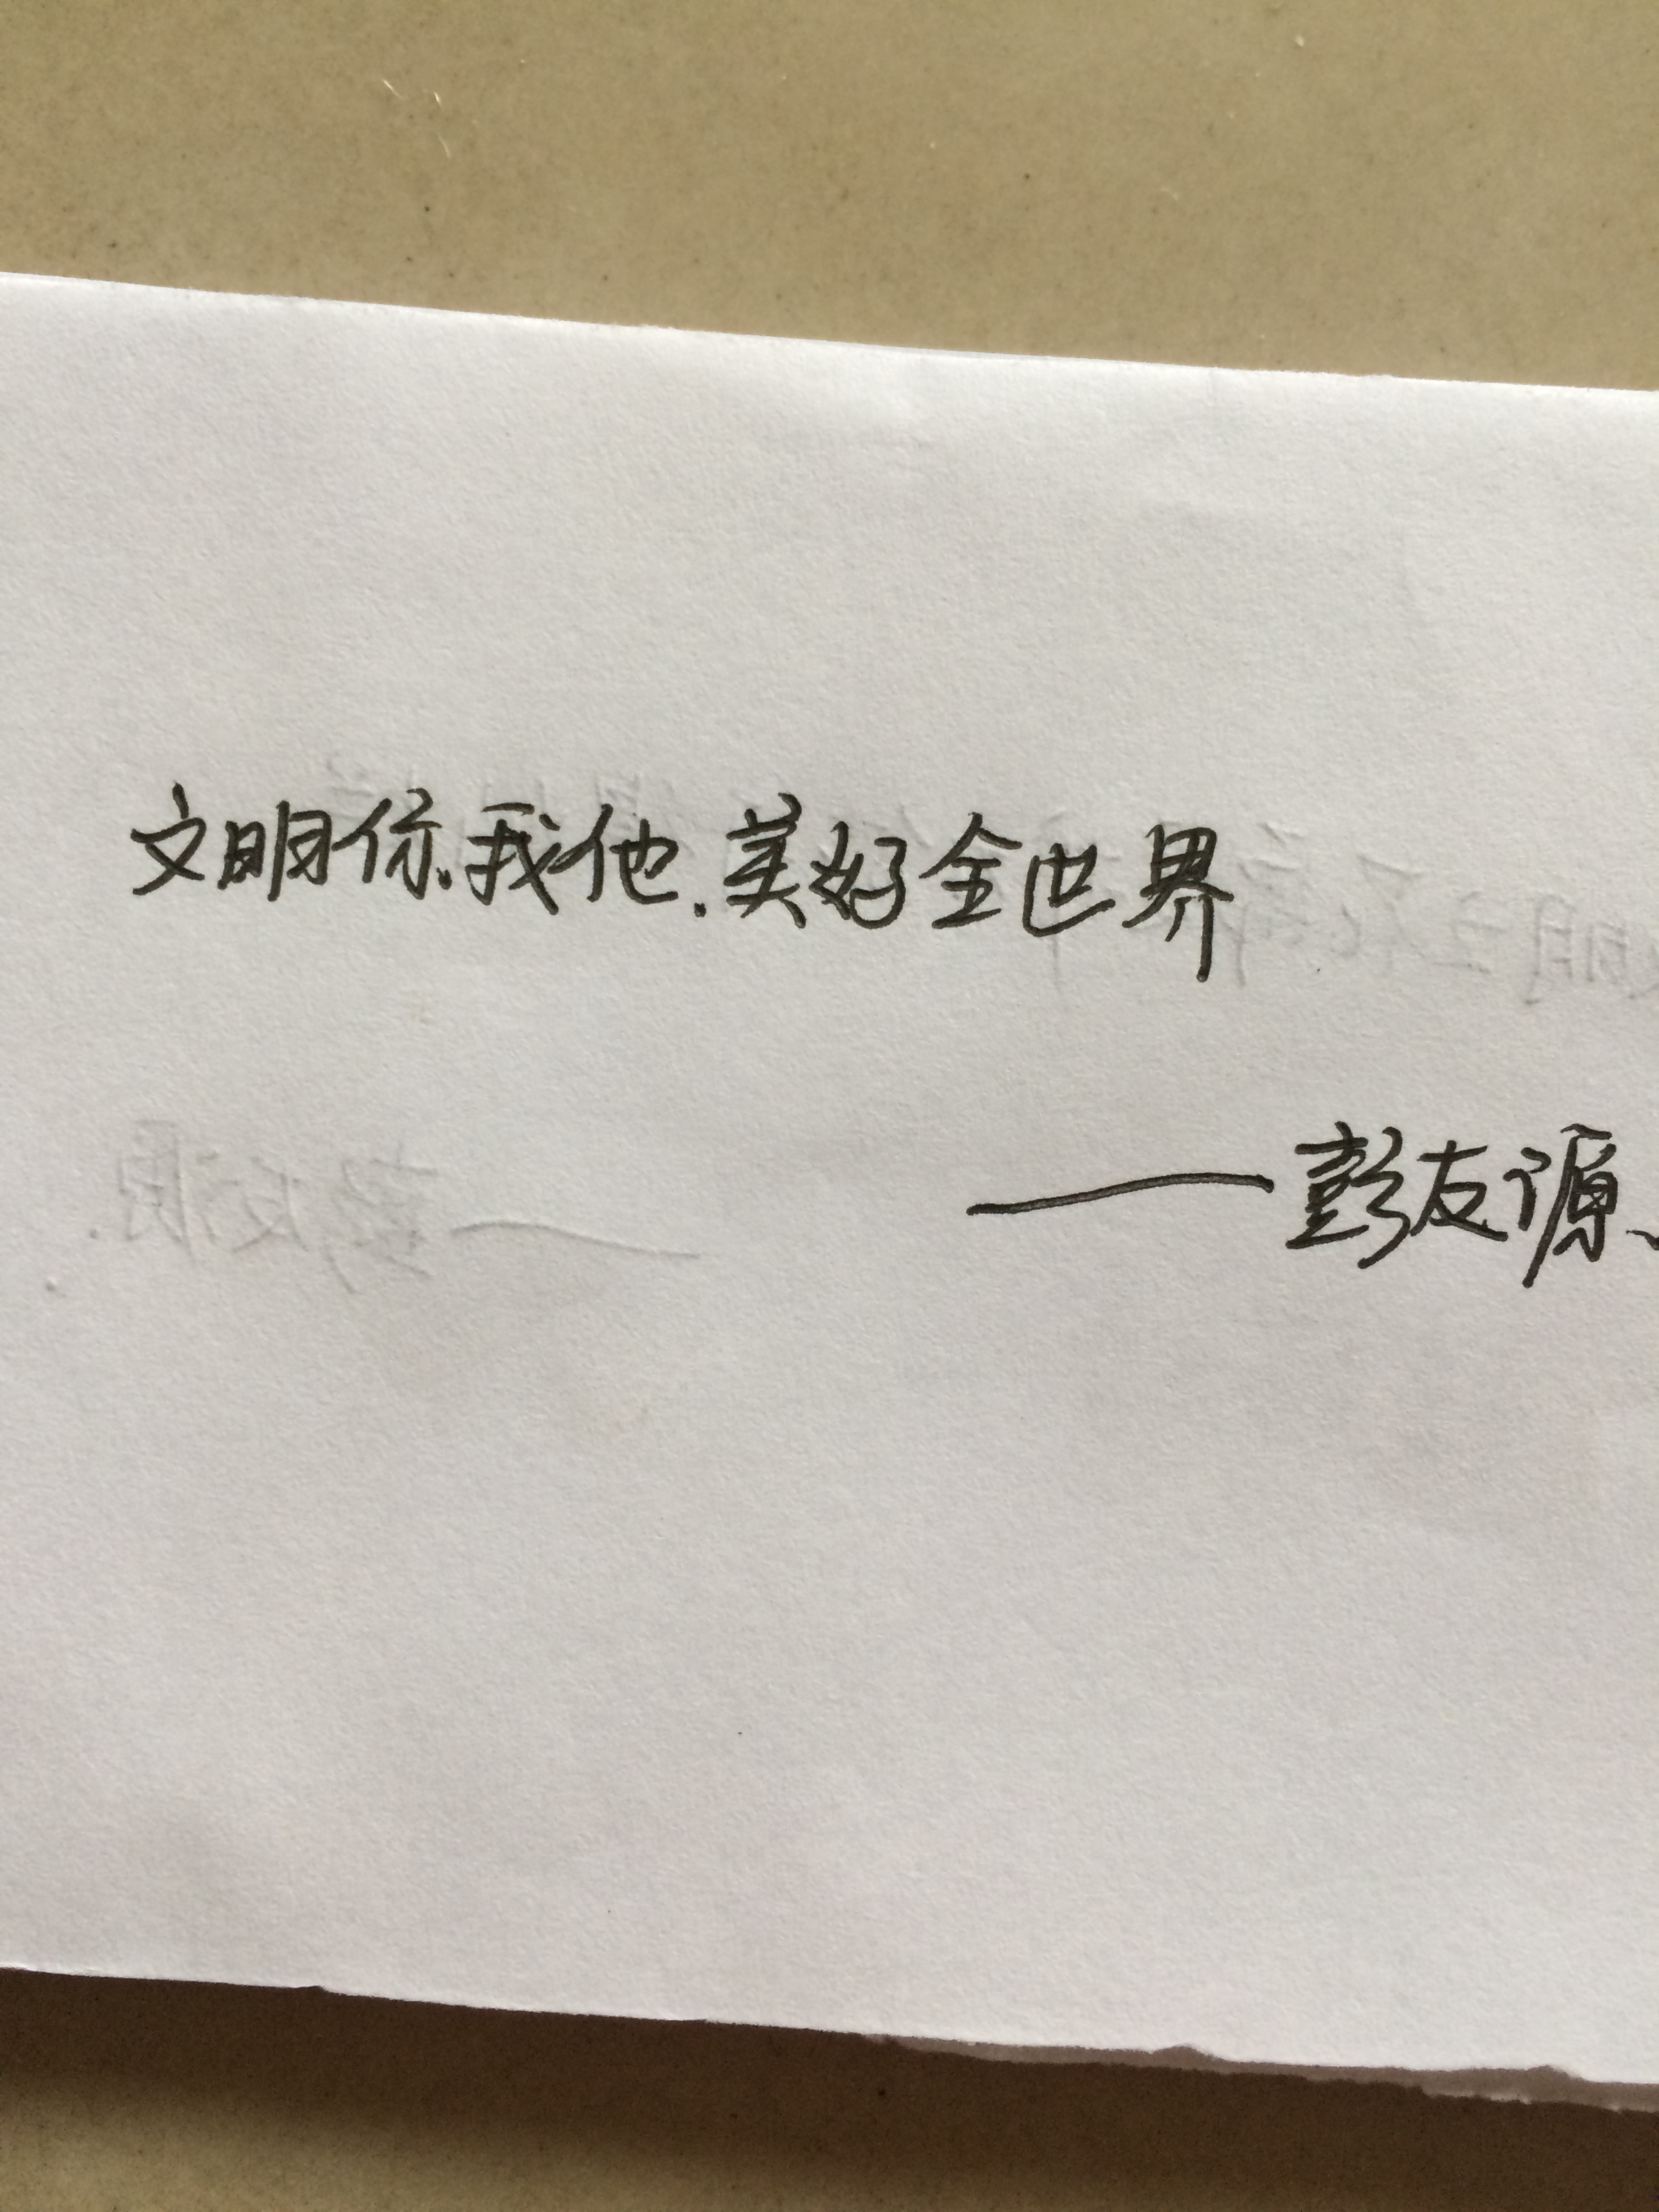 文明你、我他.美好全世界
——彭友源、